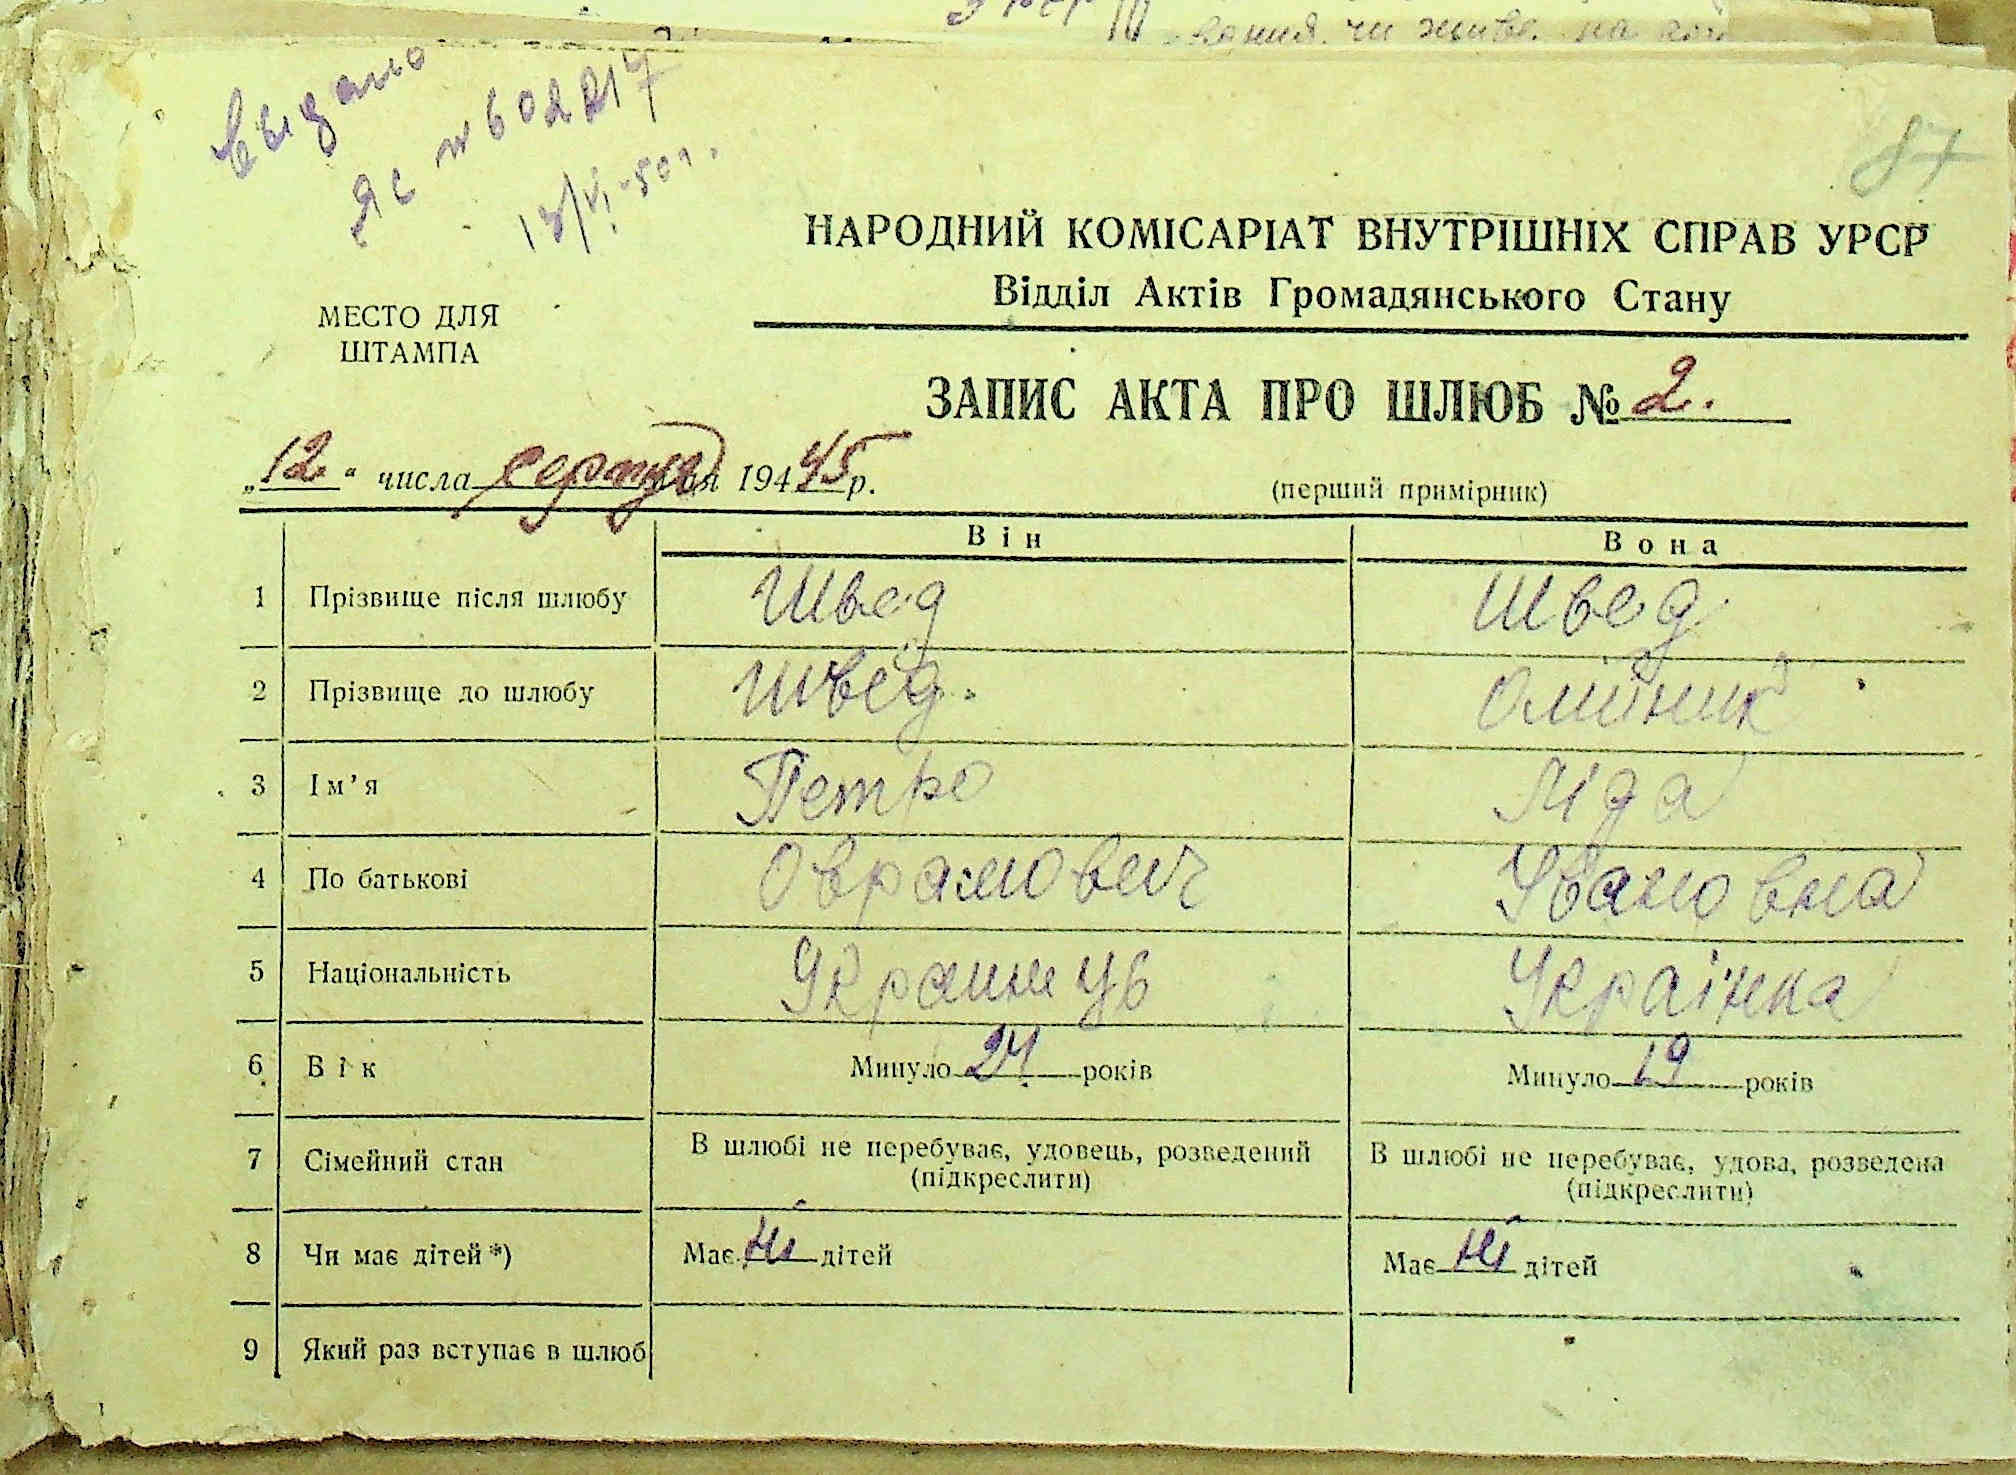 видано
ЯС № 602217
13/VI-50 г.
87
НАРОДНИЙ КОМІСАРІАТ ВНУТРІШНІХ СПРАВ УРСР
Відділ Актів Громадянського Стану
МЕСТО ДЛЯ
ШТАМПА
ЗАПИС АКТА ПРО ШЛЮБ № 2.
„12“ числа серпня 194 45 р.
(перший примірник)
Він Вона
1 Прізвище після шлюбу Швед Швед
2 Прізвище до шлюбу Швед. Олійник
3 Ім’я Петро Ліда
4 По батькові Оврамович Івановна
5 Національність Украинець Украінка
6 Вік Минуло 24 років Минуло 19 років
7 Сімейний стан В шлюбі не перебуває, удовець, розведений (підкреслити) В шлюбі не перебуває, удова, розведена (підкреслити)
8 Чи має дітей *) Має ні дітей Має ні дітей
9 Який раз вступає в шлюб